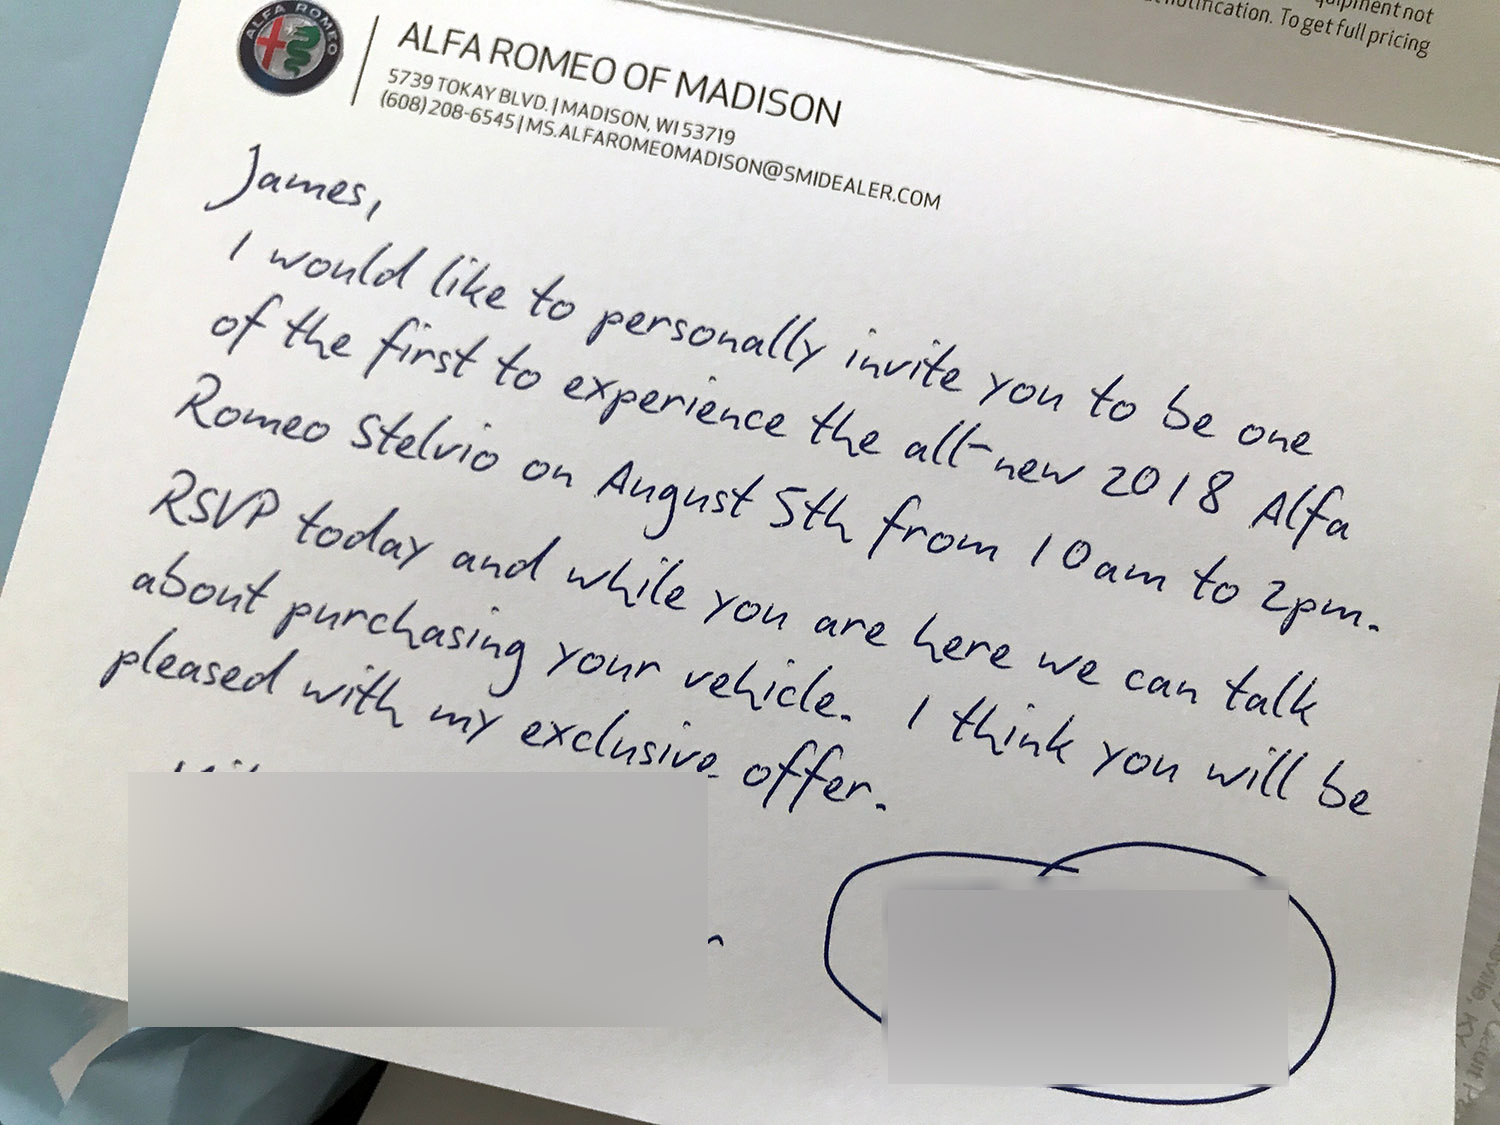 quipment not
notification. To get full pricing
ALFA ROMEO
ALFA ROMEO OF MADISON
5739 TOKAY BLVD. | MADISON, WI 53719
(608) 208-6545 | MS.ALFAROMEOMADISON@SMIDEALER.COM
James,
I would like to personally invite you to be one
of the first to experience the all-new 2018 Alfa
Romeo Stelvio on August 5th from 10am to 2pm.
RSVP today and while you are here we can talk
about purchasing your vehicle. I think you will be
pleased with my exclusive offer.